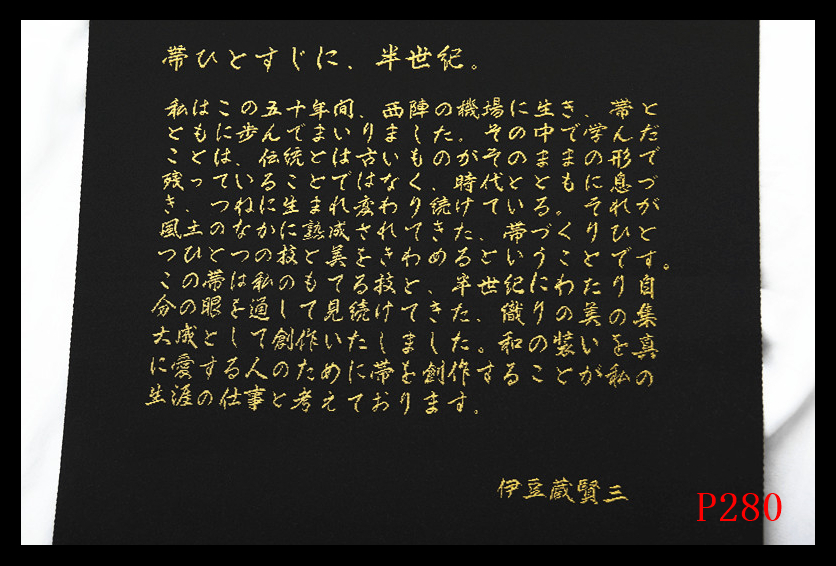 帯ひとすじに、半世紀。
私はこの五十年間、西陣の機場に生き、帯と
ともに歩んでまいりました。その中で学んだ
ことは、伝統とは古いものがそのままの形で
残っていることではなく、時代とともに息づ
き、つねに生まれ変わり続けている。それが
風土のなかに熟成されてきた、帯づくりひと
つひとつの技と美をきわめるということです。
この帯は私のもてる技と、半世紀にわたり自
分の眼を通して見続けてきた、織りの美の集
大成として創作いたしました。和の装いを真
に愛する人のために帯を創作することが私の
生涯の仕事と考えております。
伊豆蔵賢三
P280